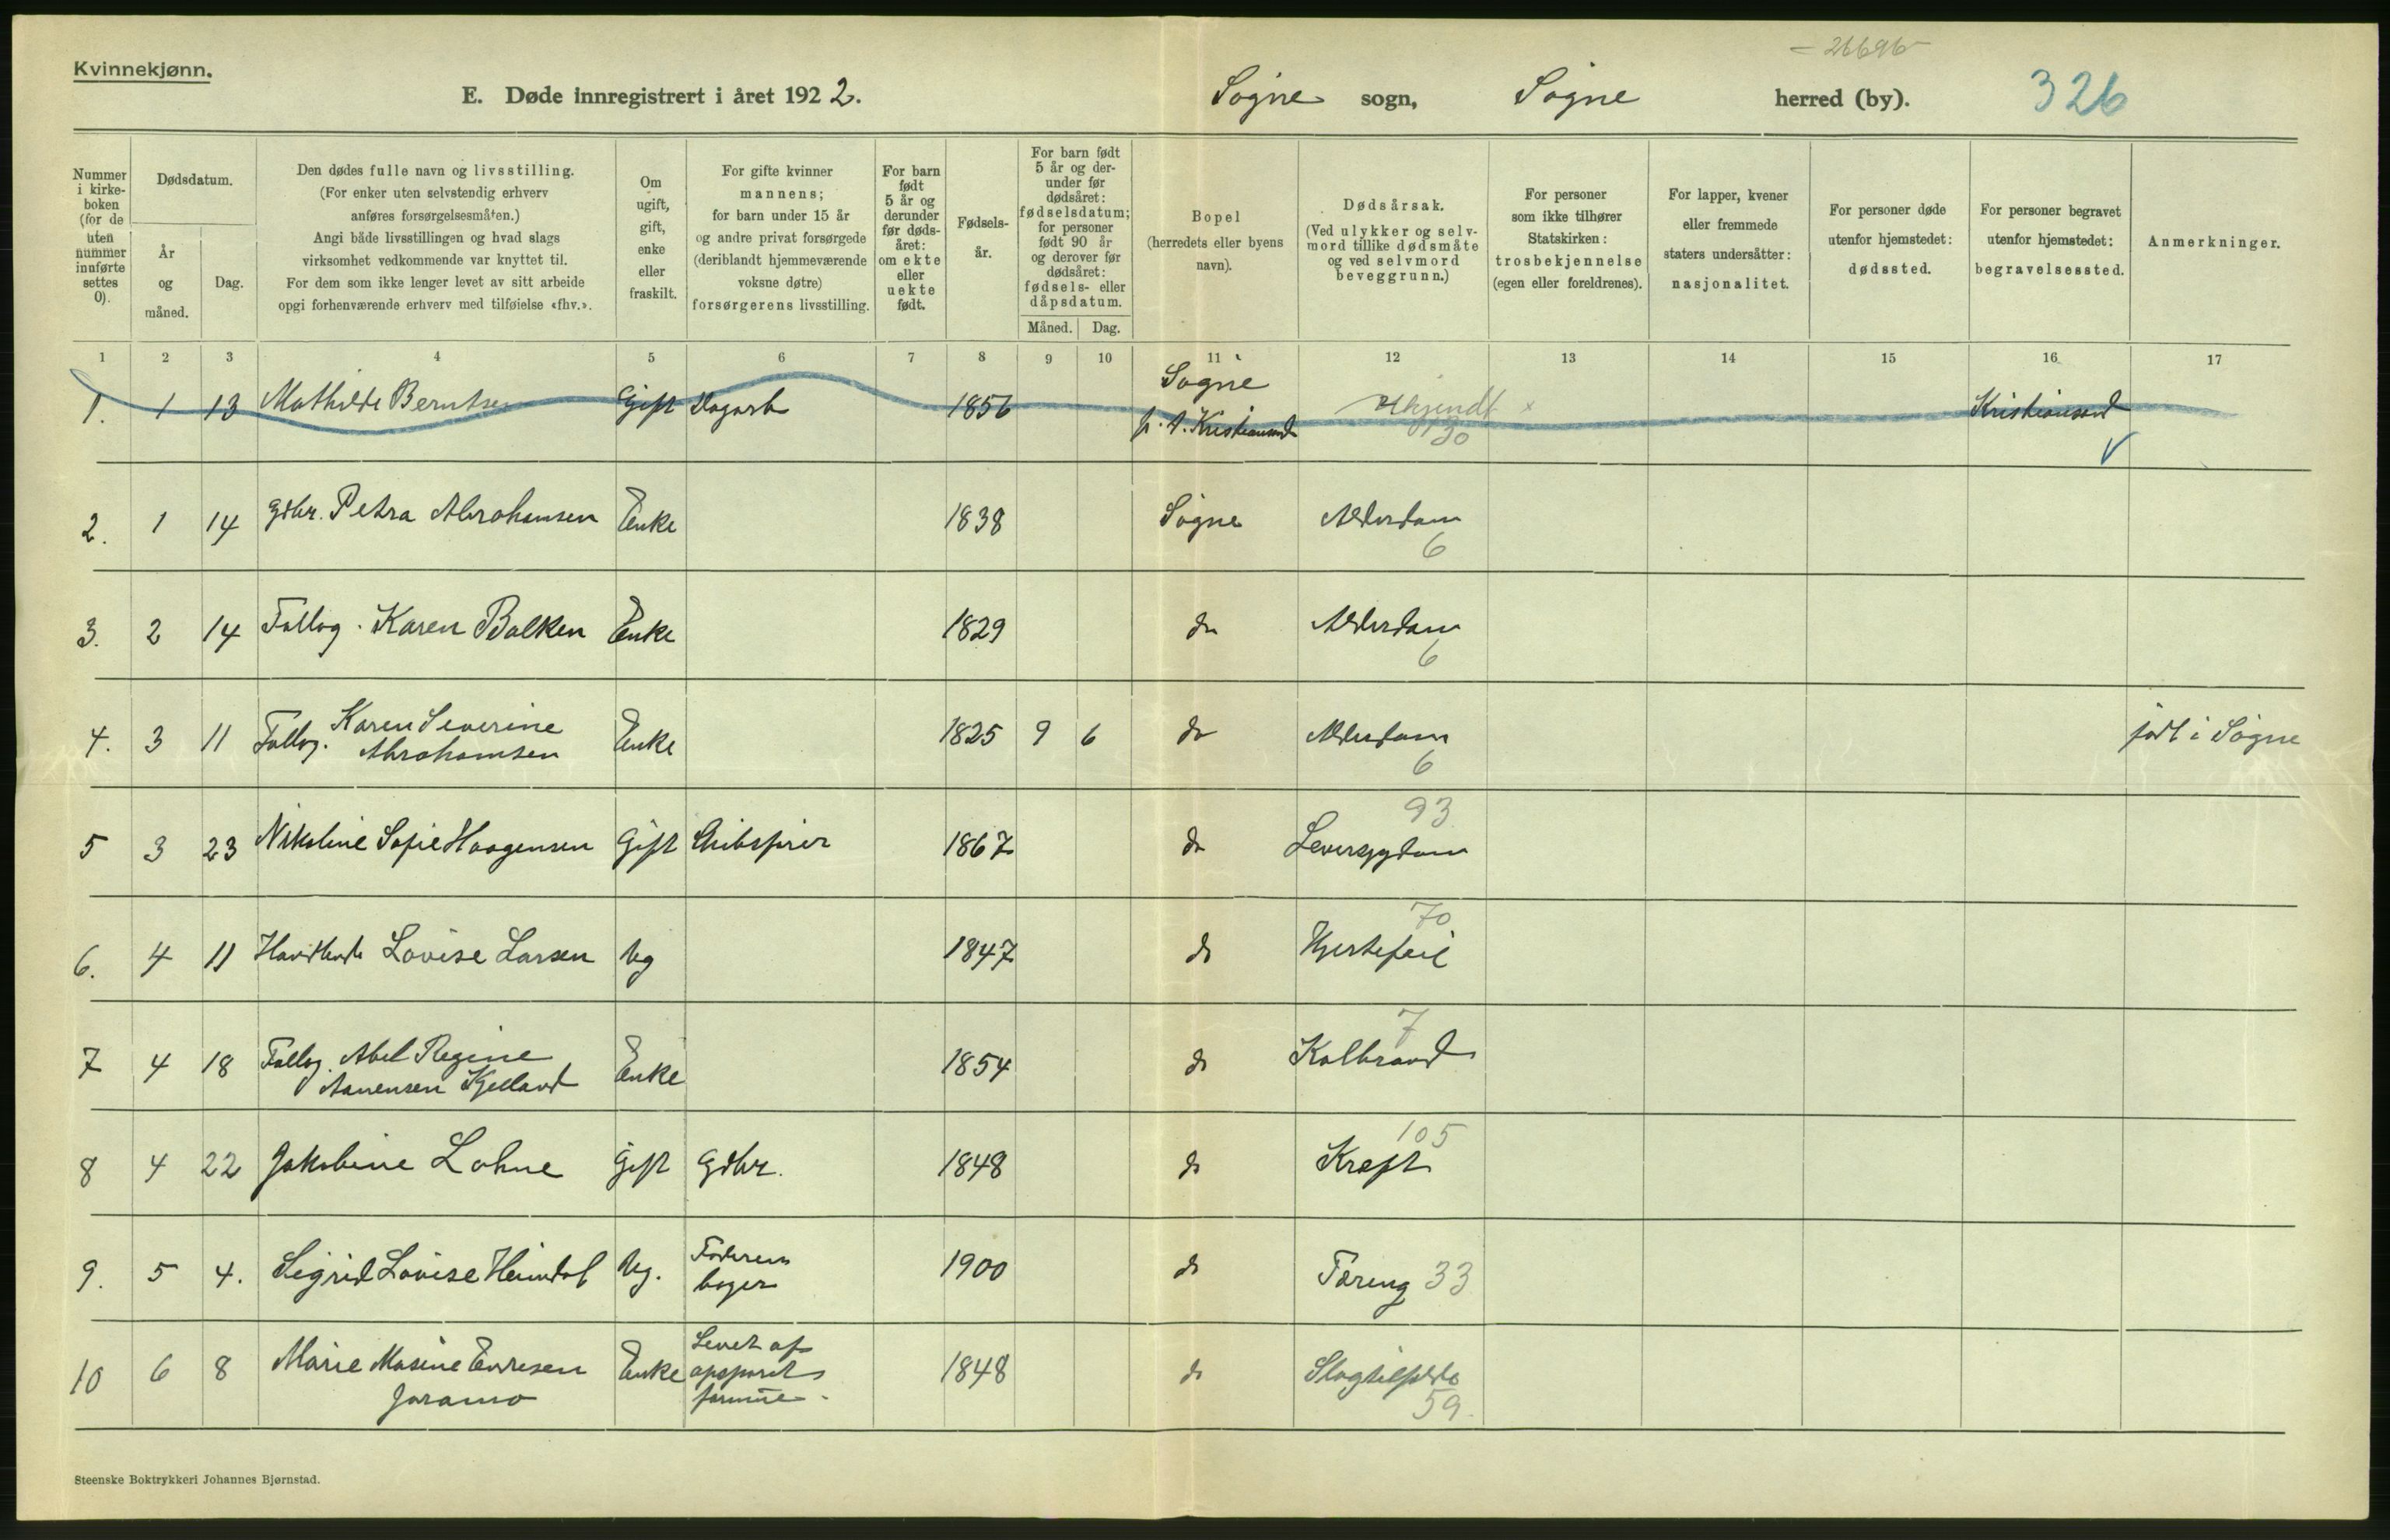 - 26696
Kvinnekjønn.
E. Døde innregistrert i året 1922. Søgne sogn, Søgne herred (by). 326
Nummer i kirke-boken (for de uten nummer innførte settes 0).
Dødsdatum.
År og måned.
Dag.
Den dødes fulle navn og livsstilling.
(For enker uten selvstendig erhverv
anføres forsørgelsesmåten.)
Angi både livsstillingen og hvad slags
virksomhet vedkommende var knyttet til.
For dem som ikke lenger levet av sitt arbeide
opgi forhenværende erhverv med tilføielse «fhv.».
Om
ugift,
gift,
enke
eller
fraskilt.
For gifte kvinner
mannens;
for barn under 15 år
og andre privat forsørgede
(deriblandt hjemmeværende
voksne døtre)
forsørgerens livsstilling.
For barn
født
5 år og
derunder
før døds-
året:
om ekte
eller
uekte
født.
Fødsels-
år.
For barn født
5 år og der-
under før
dødsåret:
fødselsdatum;
for personer
født 90 år
og derover før
dødsåret:
fødsels- eller
dåpsdatum.
Måned. Dag.
Bopel
(herredets eller byens
navn).
Dødsårsak.
(Ved ulykker og selv-
mord tillike dødsmåte
og ved selvmord
beveggrunn.)
For personer
som ikke tilhører
Statskirken:
trosbekjennelse
(egen eller foreldrenes).
For lapper, kvener
eller fremmede
staters undersåtter:
nasjonalitet.
For personer døde
utenfor hjemstedet:
dødssted.
For personer begravet
utenfor hjemstedet:
begravelsessted.
Anmerkninger.
1 2 3 4 5 6 7 8 9 10 11 12 13 14 15 16 17
1. 1 13 Mathilde Berntsen Gift Dagarb 1856 Søgne
p. t. Kristiansand Ukjendt x
130 Kristiansand
2. 1 14 Gdbr. Petra Abrahamsen Enke 1838 Søgne Alderdom
6
3. 2 14 Føllog. Karen Balken Enke 1829 do Alderdom
6
4. 3 11 Føllog. Karen Severine
Abrahamsen Enke 1825 9 6 do Alderdom
6 født i Søgne
5 3 23 Nikoline Sofie Haagensen Gift Skibsfører 1867 do 93
Leversygdom
6. 4 11 Lovise Larsen Ug 1847 do 70
Hjertefeil
7 4 18 Føllog. Abel Regine
Aanensen Kjelland Enke 1854 do 7
Kolbrand
8 4 22 Jakobine Lohne Gift Gdbr. 1848 do 105
Kræft
9. 5 4. Sigrid Lovise Heimdal Ug. Faderen
bager 1900 do Tæring 33
10 6 8 Marie Masine Evresen
Enke Levet af
opsparet
formue 1848 do Slagtilfælde
59.
Steenske Boktrykkeri Johannes Bjørnstad.